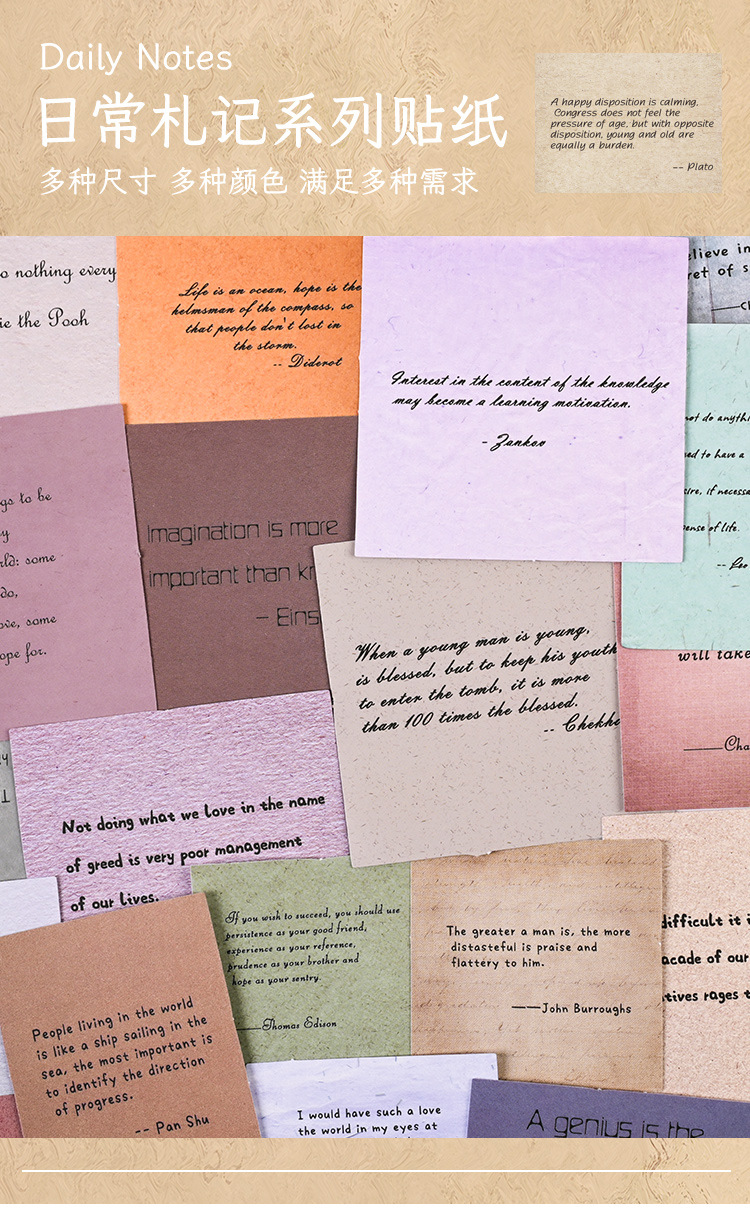 Daily Notes
日常札记系列贴纸
多种尺寸 多种颜色 满足多种需求
A happy disposition is calming,
Congress does not feel the
pressure of age, but with opposite
disposition, young and old are
equally a burden.
-- Plato
o nothing every
ie the Pooh
Life is an ocean, hope is the
helmsman of the compass, so
that people don't lost in
the storm.
-- Diderot
Interest in the content of the knowledge
may become a learning motivation.
- Zankov
elieve in
ret of s
not do anythi
ed to have a
sire, if necessa
ense of life.
-- Leo
gs to be
y
rld: some
do,
ove, some
ope for.
Imagination is more
important than kn
- Eins
When a young man is young,
is blessed, but to keep his youth
to enter the tomb, it is more
than 100 times the blessed.
-- Chekho
will take
——Cha
Not doing what we love in the name
of greed is very poor management
of our lives.
If you wish to succeed, you should use
persistence as your good friend,
experience as your reference,
prudence as your brother and
hope as your sentry.
——Thomas Edison
The greater a man is, the more
distasteful is praise and
flattery to him.
——John Burroughs
difficult it i
acade of our
tives rages t
People living in the world
is like a ship sailing in the
sea, the most important is
to identify the direction
of progress.
-- Pan Shu
I would have such a love
the world in my eyes at
A genius is the